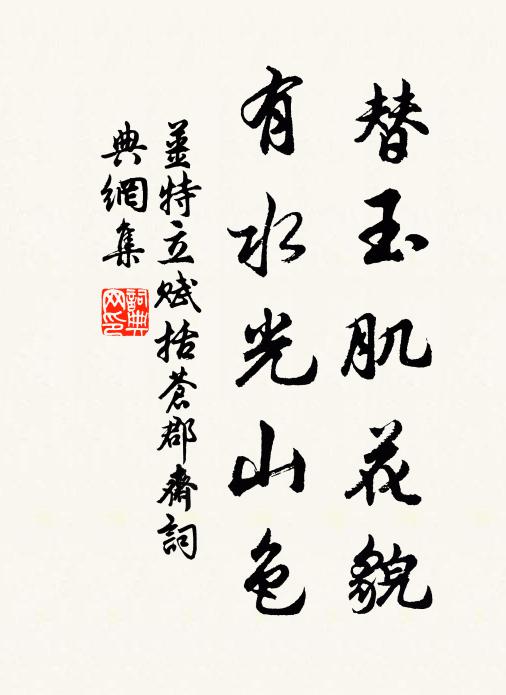 替玉肌花貌
有水光山色
姜特立赋括蒼郡齋詞
典網集
詞典網印